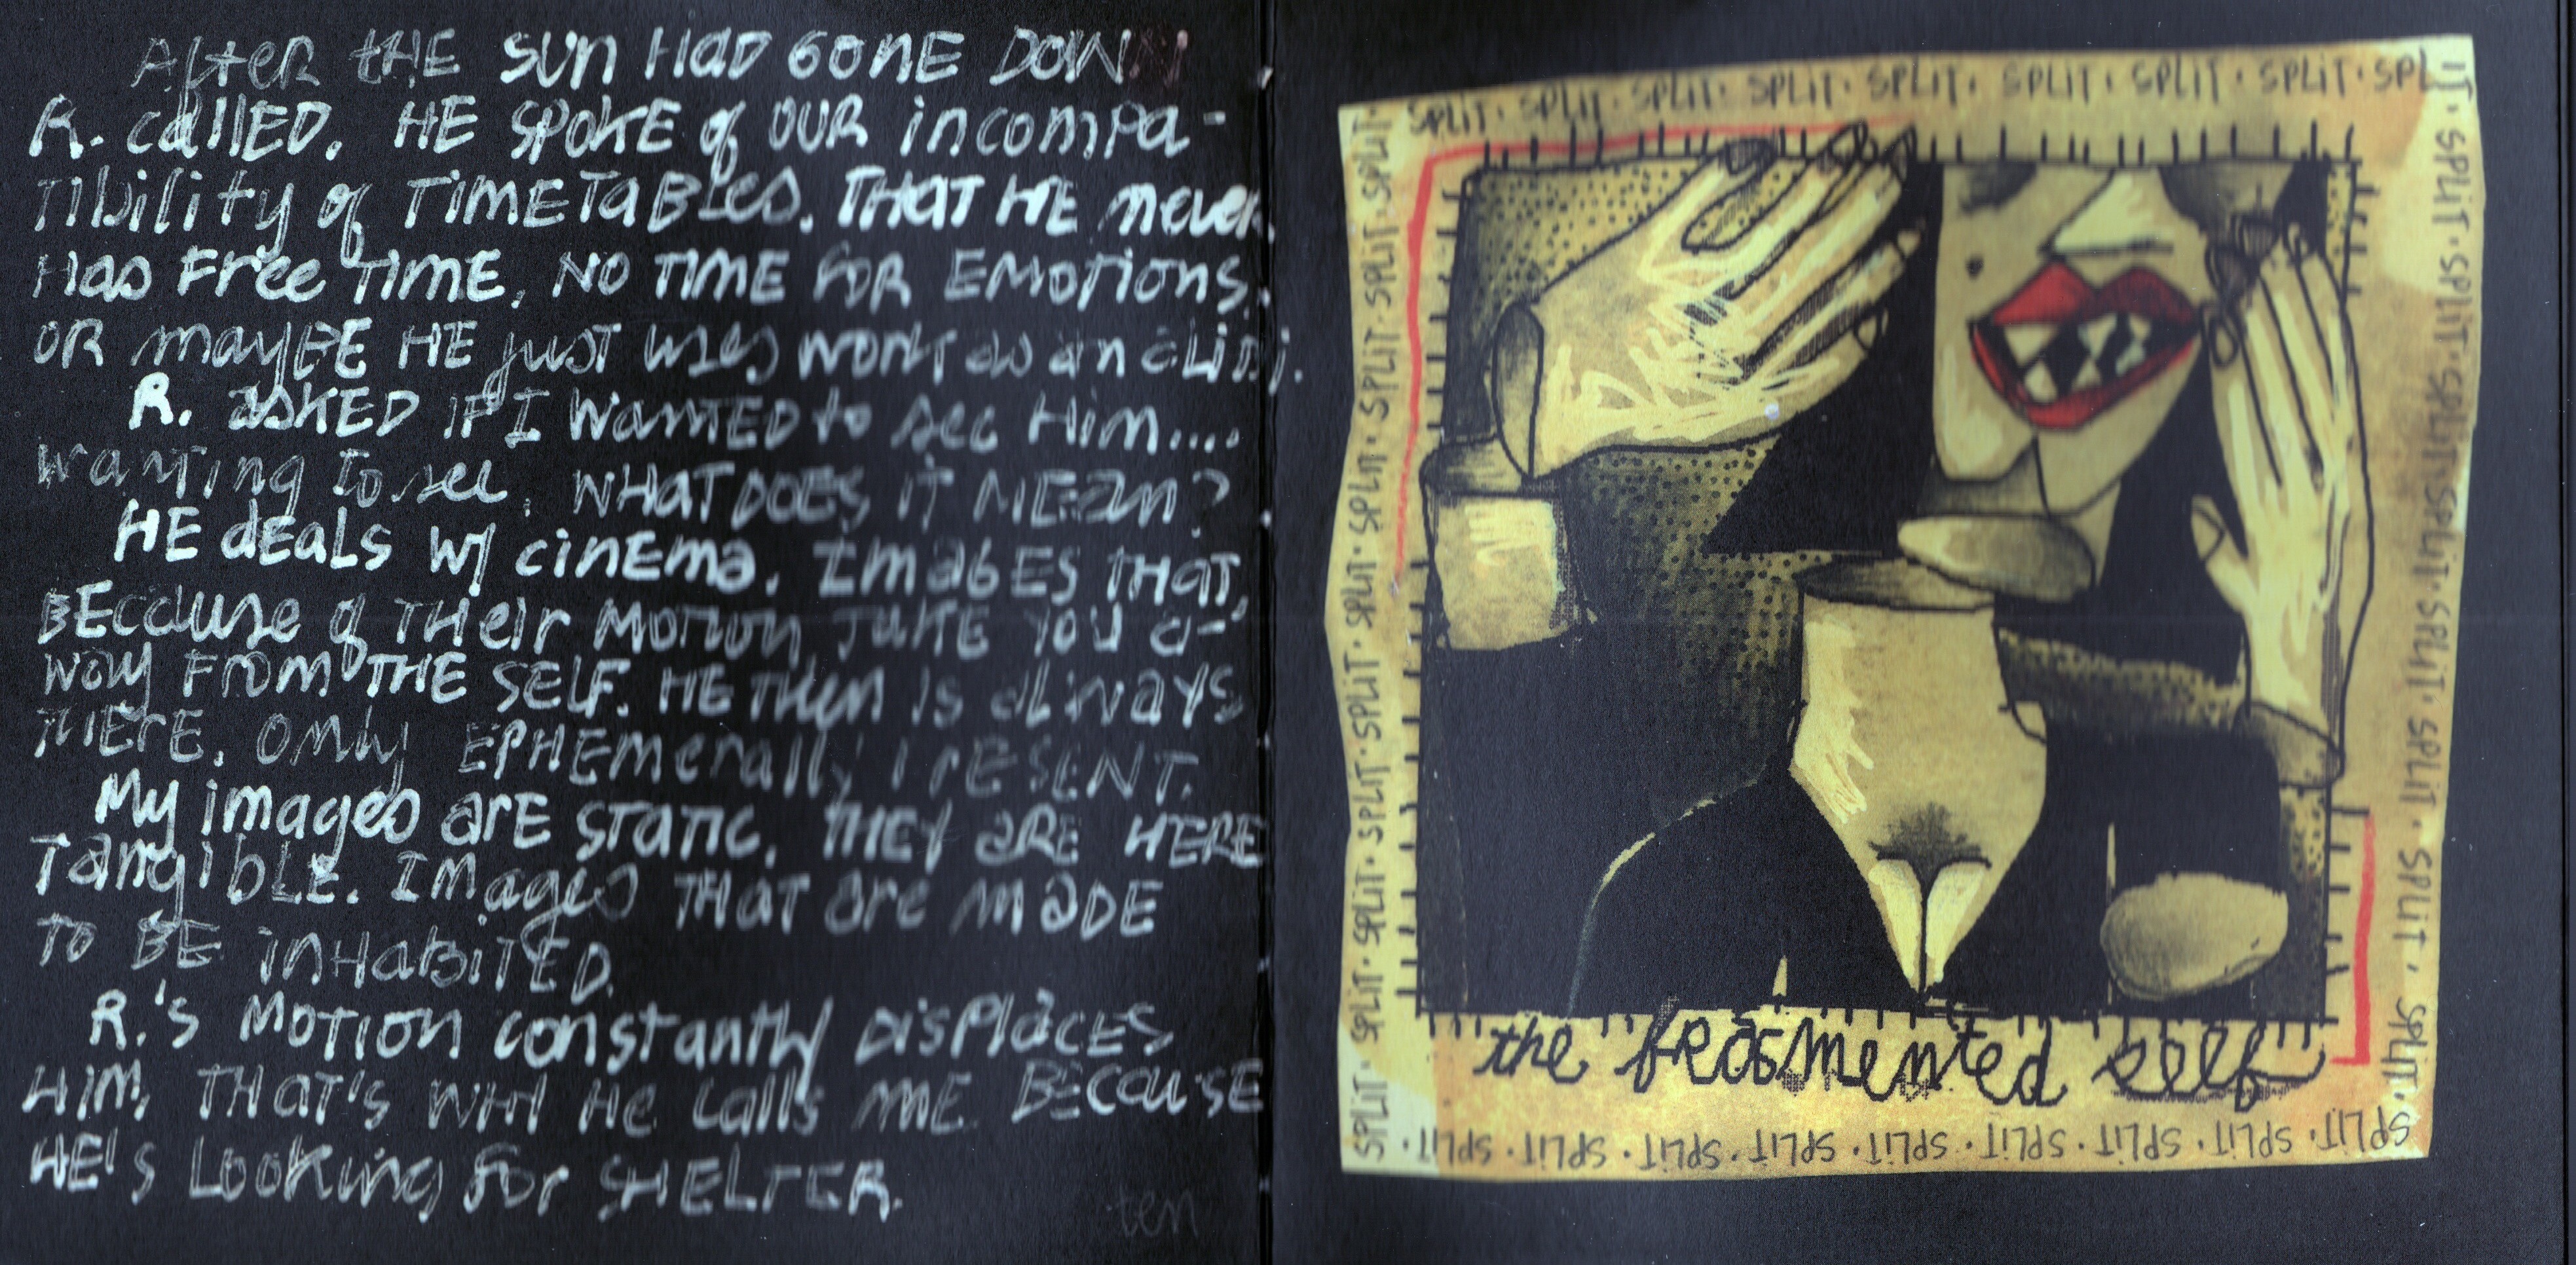 After THE SUN HAD GONE DOWN
R. CALLED. HE SPOKE of OUR incompa-
Tibility of TIMETABLES. THAT HE never
HAS Free TIME, NO TIME FOR EMOTIONS.
OR maybe HE just uses work as an alibi.
R. ASKED IF I WANTED to see Him....
wanting to see. WHAT DOES IT MEAN?
HE deals w/ cinema. IMAGES THAT,
BECause of THeir MOTION TAKE YOU a-
way FROM THE SELF. HE THen is always
THERE, only EPHEmerally PrESENT.
My images are STATIC. THEY ARE HERE
Tangible. Images THAT are MADE
TO BE inHABITED.
R.'s MOTION constantly DISPLACES
HIM, THAT'S WHY HE calls ME. BECAUSE
HE'S LOOKING for SHELTER.
ten
SPLIT · SPLIT · SPLIT · SPLIT · SPLIT · SPLIT · SPLIT · SPLIT · SPLIT ·
SPLIT · SPLIT · SPLIT · SPLIT · SPLIT · SPLIT · SPLIT · SPLIT · SPLIT ·
SPLIT · SPLIT · SPLIT · SPLIT · SPLIT · SPLIT · SPLIT · SPLIT · SPLIT ·
SPLIT · SPLIT · SPLIT · SPLIT · SPLIT · SPLIT · SPLIT · SPLIT · SPLIT ·
the fragmented self